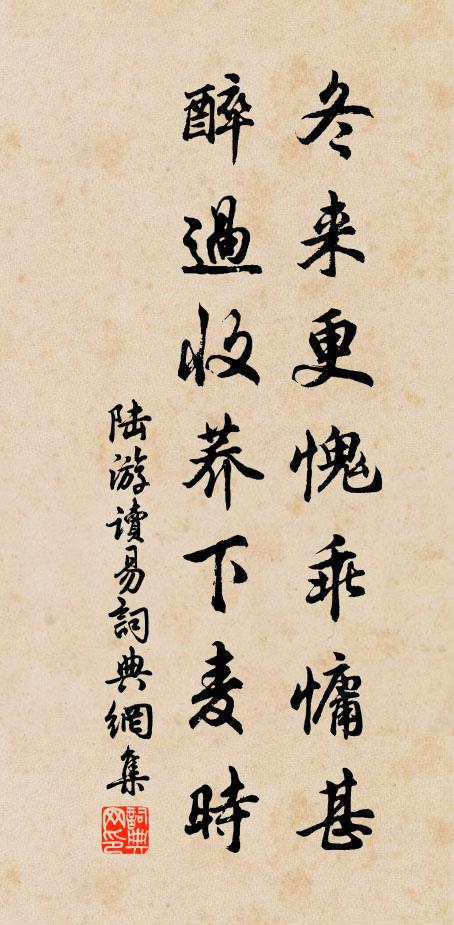 冬来更愧乖慵甚
醉過收荞下麦時
陆游讀易詞典網集
詞典网印